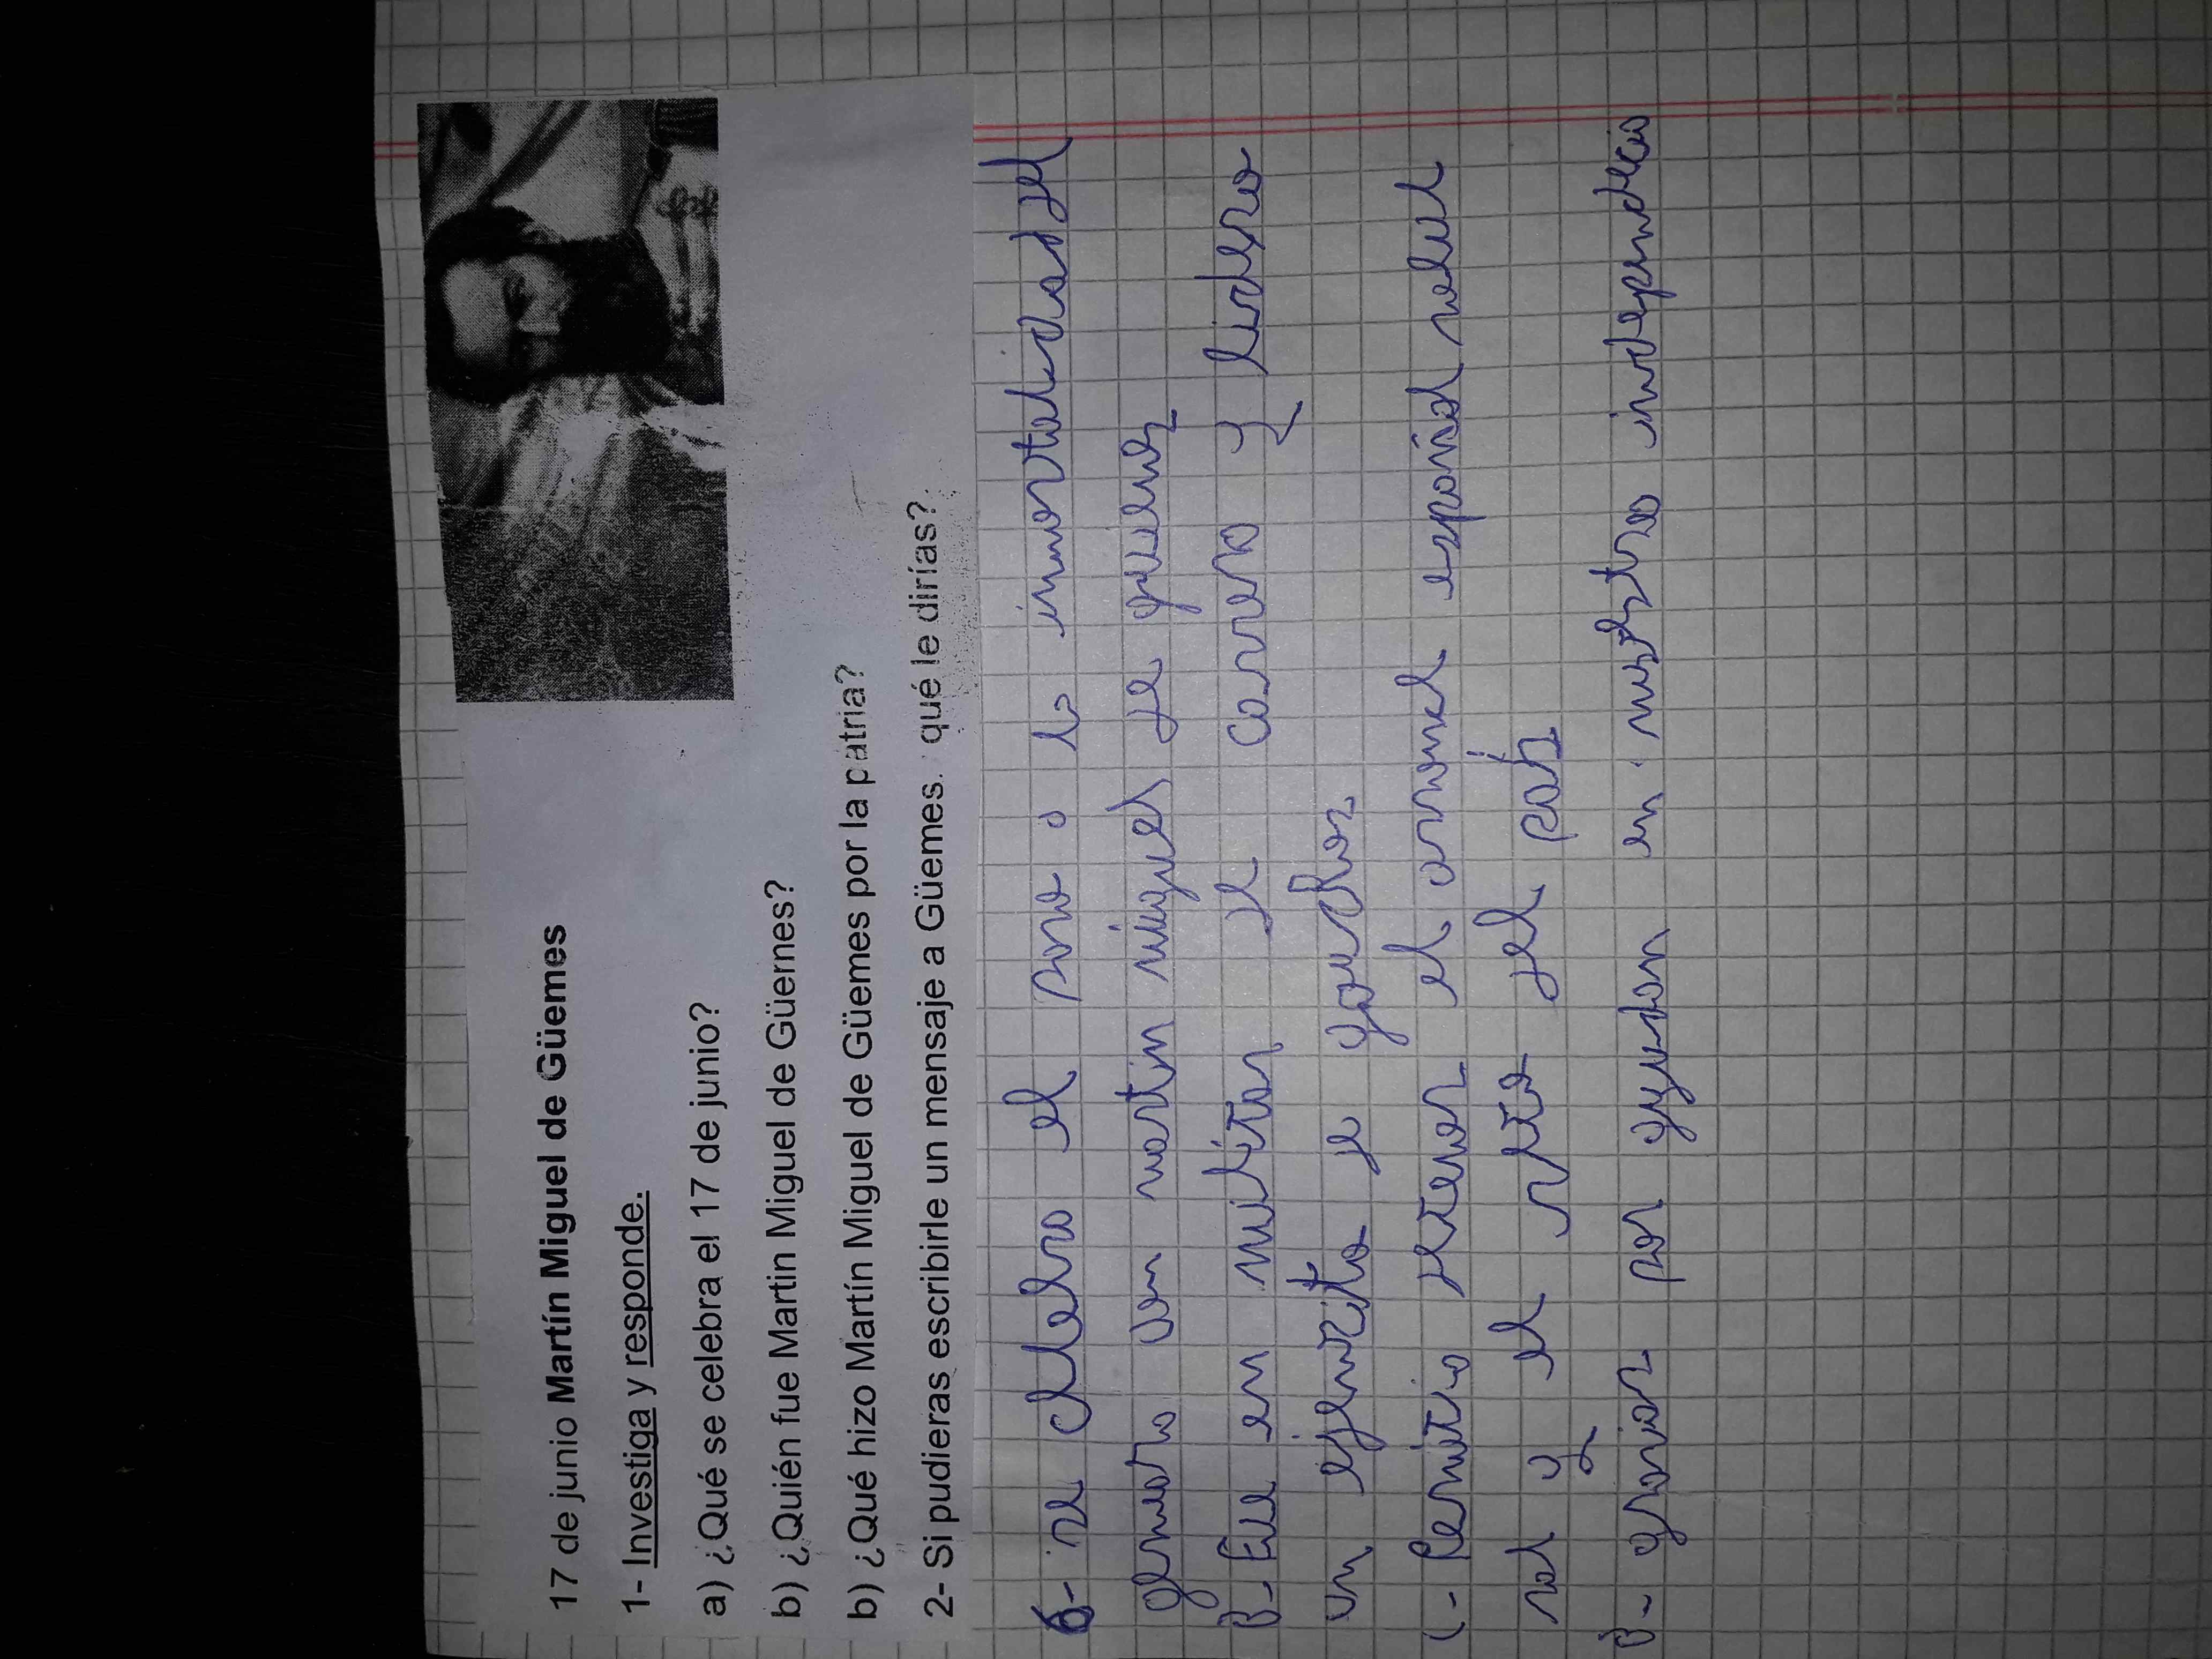 17 de junio Martín Miguel de Güemes
1- Investiga y responde.
a) ¿Qué se celebra el 17 de junio?
b) ¿Quién fue Martin Miguel de Güemes?
b) ¿Qué hizo Martín Miguel de Güemes por la patria?
2- Si pudieras escribirle un mensaje a Güemes. qué le dirías?
se celebra el paso a la inmortalidad del
martin miguel de guemes
B- Fue un militar de carrera y lidero
un ejercito de gauchos
C- Permitio detener el español
y el del país
gracias por ayudar en nuestra independecia